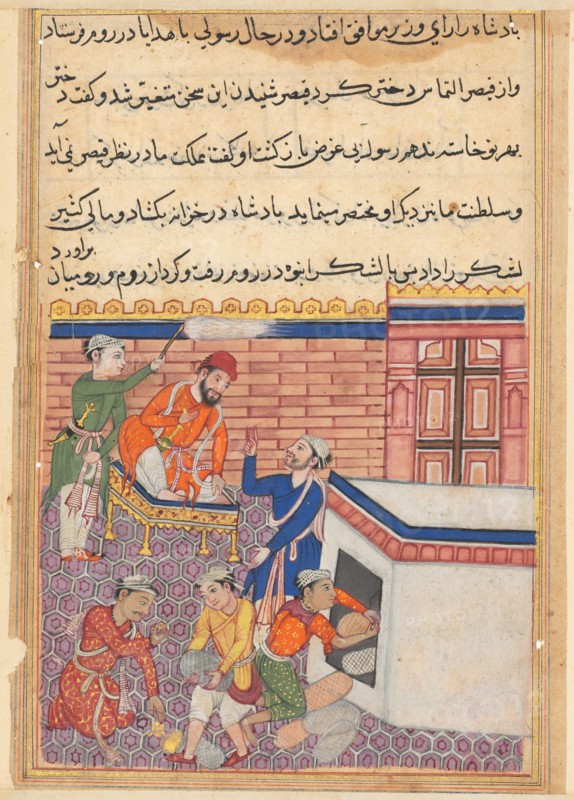 پادشاه را رای وزیر موافق افتاد و در حال رسولی با هدایا در روم فرستاد
و از قیصر التماس دختر کرد قیصر شنیدن این سخن متغیر شد و گفت دختر
بهر نوخاسته ندهم رسول بی غرض بازگشت او گفت مملکت ما در نظر قیصر نمی آید
و سلطنت ما بنزدیک او مختصر مینماید پادشاه در خزانه بگشاد و مالی کثیر
برآورد
لشکر را داد پس با لشکر انبوه در روم رفت و کرد از روم و رومیان
PHOTO12